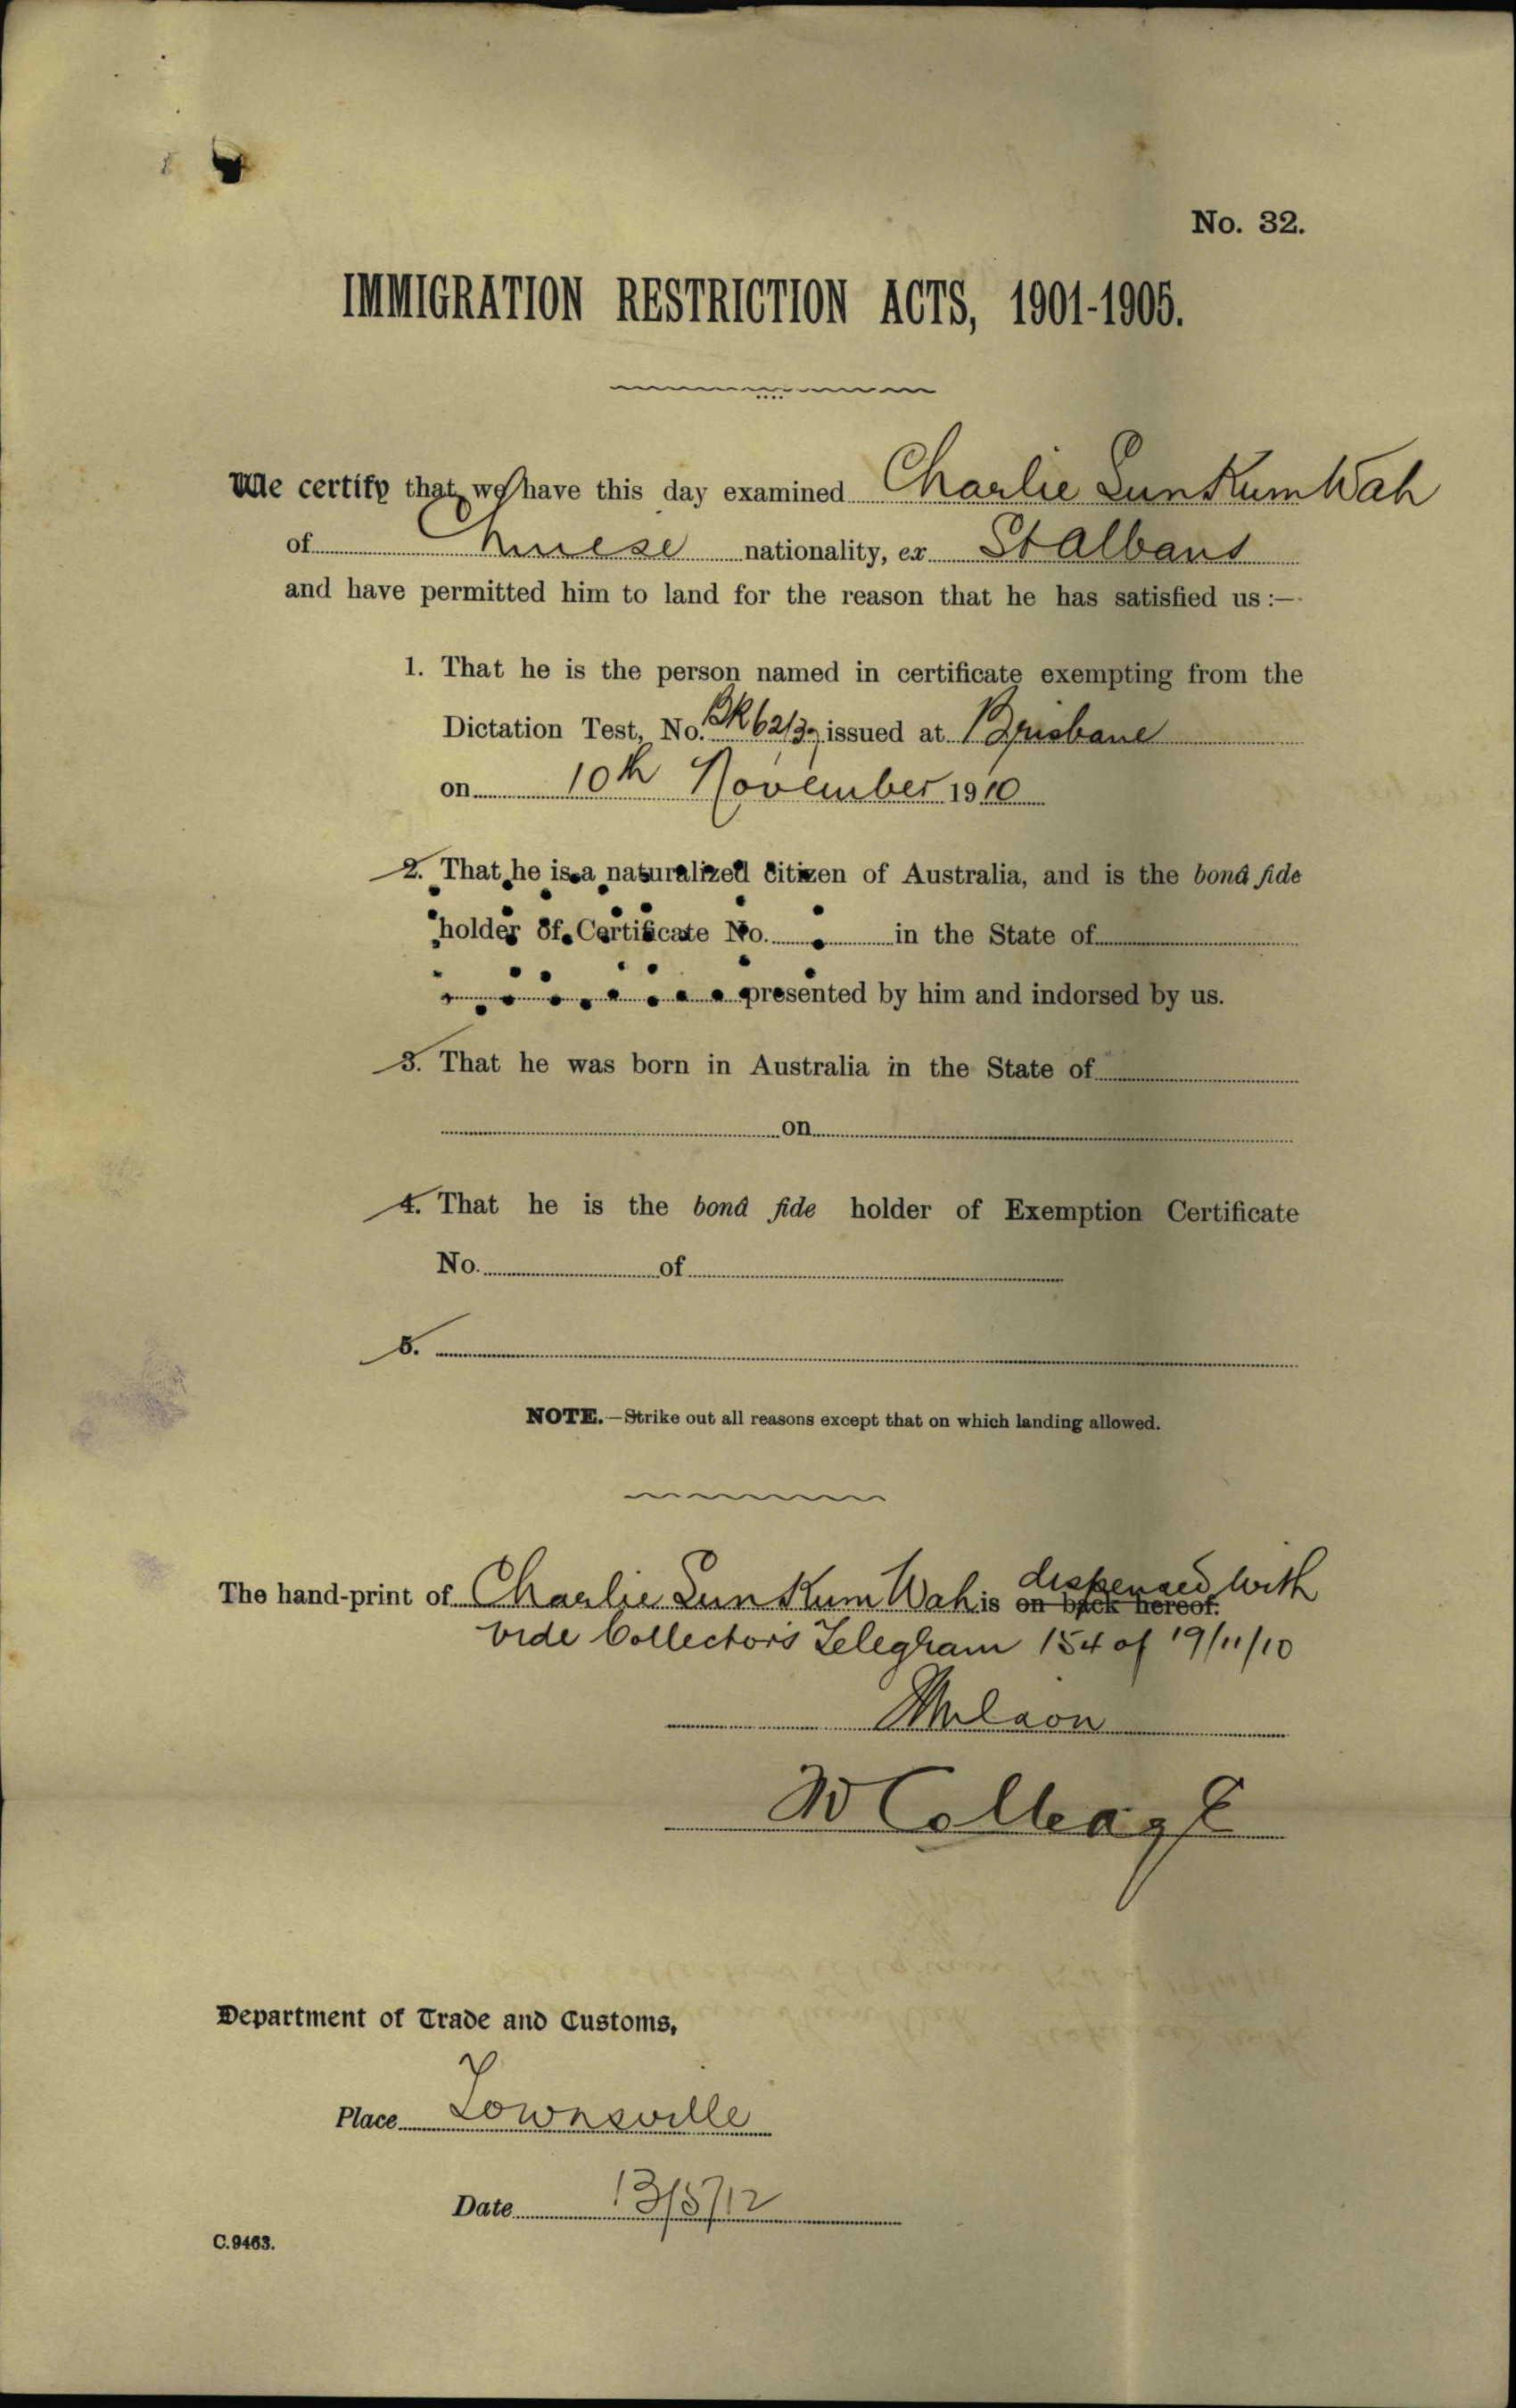 No. 32.
IMMIGRATION RESTRICTION ACTS, 1901-1905.
We certify that we have this day examined Charlie Sun Kum Wah
of Chinese nationality, ex St Albans
and have permitted him to land for the reason that he has satisfied us:—
1. That he is the person named in certificate exempting from the
Dictation Test, No. issued at Brisbane
on 10th November 1910
2. That he is a naturalized citizen of Australia, and is the bonâ fide
holder of Certificate No. in the State of
presented by him and indorsed by us.
3. That he was born in Australia in the State of
on
4. That he is the bonâ fide holder of Exemption Certificate
No. of
5.
NOTE.—Strike out all reasons except that on which landing allowed.
The hand-print of Charlie Sun Kum Wah is on back hereof. dispensed with
vide Collector's Telegram 154 of 19/11/10
Department of Trade and Customs,
Place Townsville
Date 13/5/12
C.9463.